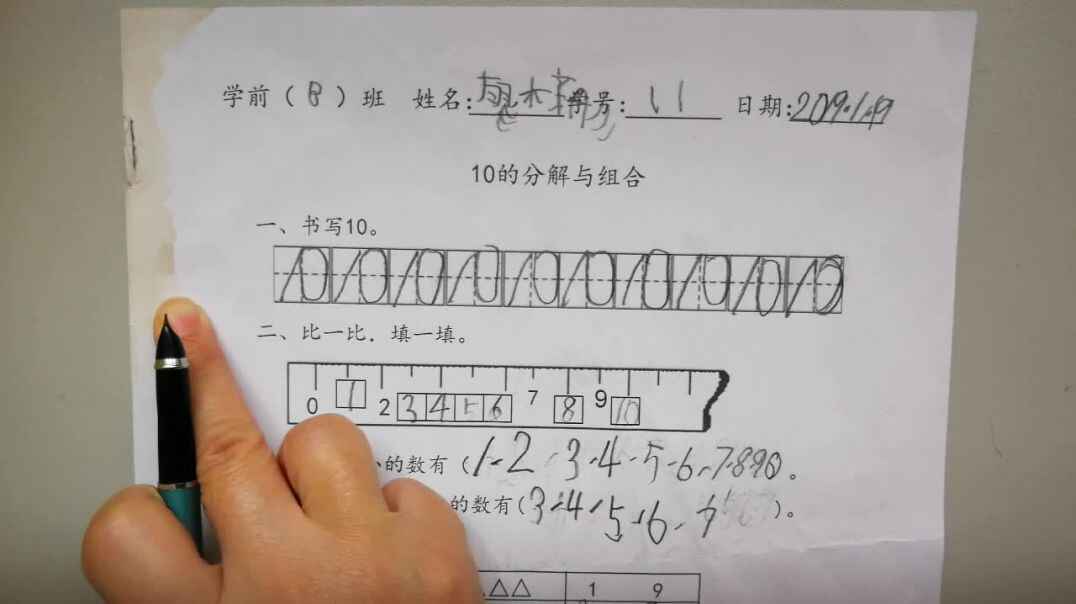 学前（B）班 姓名: 学号: 11 日期:209.1.9
10的分解与组合
一、书写10。
10 10 10 10 10 10 10 10 10 10
二、比一比．填一填。
0 1 2 3 4 5 6 7 8 9 10
的数有（1、2、3、4、5、6、7、8 9 10。
的数有(3、4、5、6、7)。
△△ 1 9